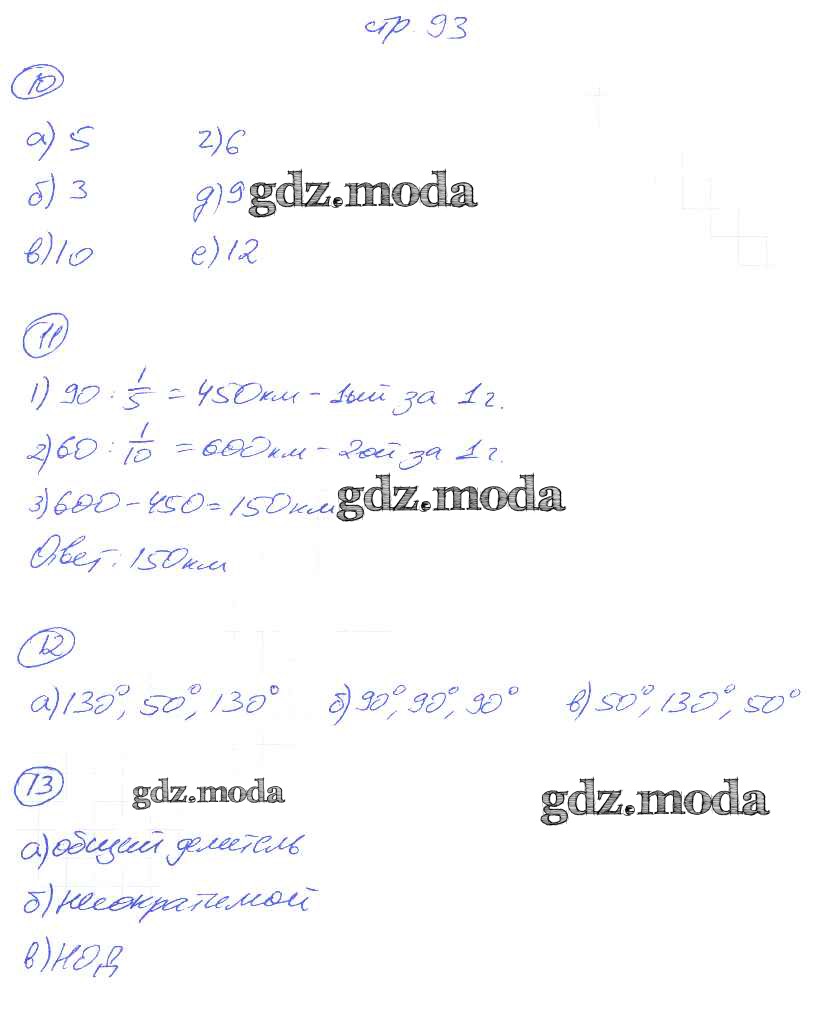 стр. 93
10
а) 5 г) 6
б) 3 д) 9 gdz.moda
в) 10 е) 12
11
1) 90 : 1/5 = 450 км - 1ый за 1 г.
2) 60 : 1/10 = 600 км - 2ой за 1 г.
3) 600 - 450 = 150 км gdz.moda
Ответ: 150 км
12
а) 130°, 50°, 130° б) 90°, 90°, 90° в) 50°, 130°, 50°
13
gdz.moda gdz.moda
а) общий делитель
б) несократимой
в) НОД